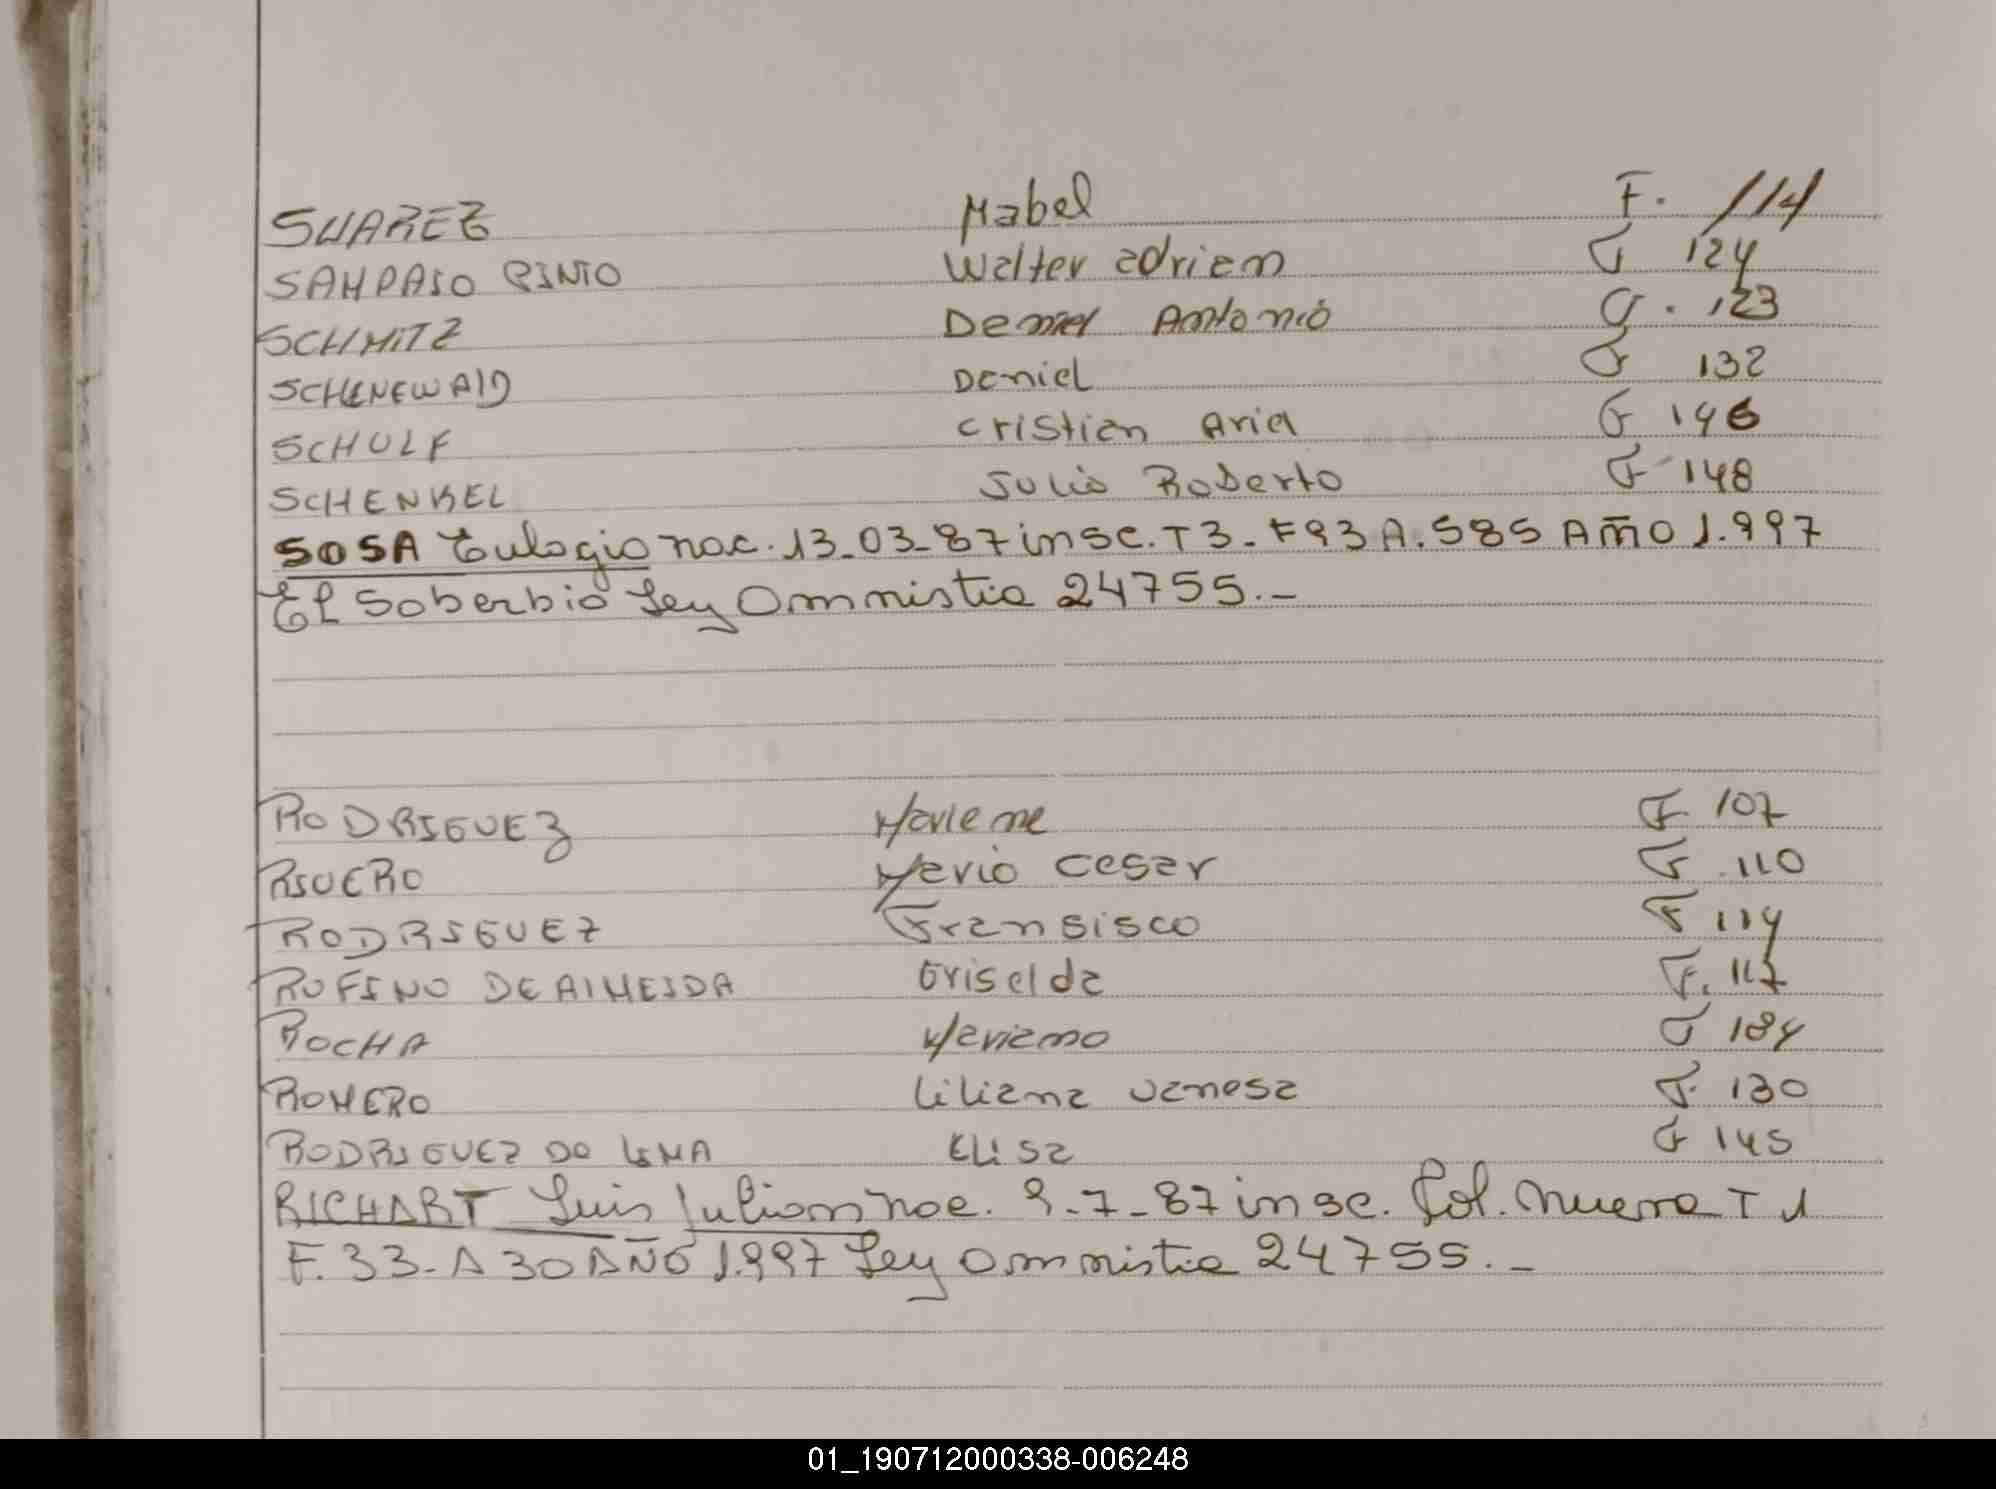 SUAREZ Mabel F. 114
SAMPAIO PINTO Walter adrian F 124
SCHMITZ Daniel Antonio F. 123
SCHENEWALD Daniel F 132
SCHULF Cristian Ariel F 146
SCHENKEL Julio Roberto F 148
SOSA Eulogio nac. 13-03-87 insc. T3-F93 A. 585 AÑO 1.997
El Soberbio Ley Omnistia 24755.-
RODRIGUEZ Marlene F. 107
RIVERO Mario Cesar F. 110
RODRIGUEZ Fransisco F 114
RUFINO DE ALMEIDA Griselda F. 117
ROCHA Mariano F
ROMERO Liliana Vanesa F. 130
RODRIGUEZ DO LIMA Elisa F 145
RICHART Luis Julian nac. 9-7-87 insc. Col. Nueva T 1
F. 33- A 30 AÑO 1.997 Ley Omnistia 24755.-
01_190712000338-006248